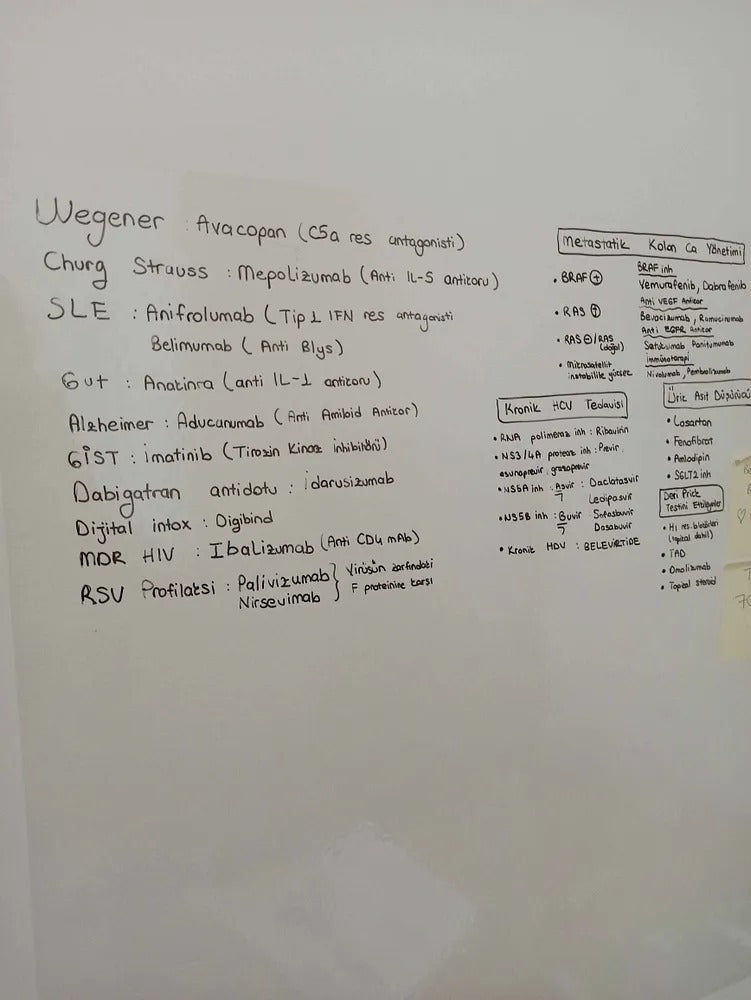 Wegener : Avacopan (C5a res antagonisti)
Churg Strauss : Mepolizumab (Anti IL-5 antikoru)
SLE : Anifrolumab (Tip 1 IFN res antagonisti
Belimumab (Anti Blys)
Gut : Anakinra (anti IL-1 antikoru)
Alzheimer : Aducanumab (Anti Amiloid Antikor)
GİST : imatinib (Tirozin Kinaz inhibitörü)
Dabigatran antidotu : idarusizumab
Dijital intox : Digibind
MDR HIV : Ibalizumab (Anti CD4 mAb)
RSV Profilaksi : Palivizumab } Virüsün zarfındaki
Nirsevimab } F proteinine karşı
Metastatik Kolon Ca Yönetimi
• BRAF ⊕ BRAF inh
Vemurafenib, Dabrafenib
• RAS ⊕ Anti VEGF Antikor
Bevacizumab, Ramucirumab
• RAS ⊖/RAS (doğal) Anti EGFR Antikor
Setuksimab Panitumumab
• Mikrosatellit instabilite yüksek immünoterapi
Nivolumab, Pembrolizumab
Kronik HCV Tedavisi
• RNA polimeraz inh : Ribavirin
• NS3/4A proteaz inh : Previr
asunaprevir, grazoprevir
• NS5A inh : Asvir : Daclatasvir
Ledipasvir
• NS5B inh : Buvir Sofosbuvir
Dasabuvir
• Kronik HDV : BELEVİRTİDE
Ürik Asit Düşürücü
• Losartan
• Fenofibrat
• Amlodipin
• SGLT2 inh
Deri Prick
Testini Etkileyenler
• H1 res. blokörleri
(topikal dahil)
• TAD
• Omalizumab
• Topikal steroid